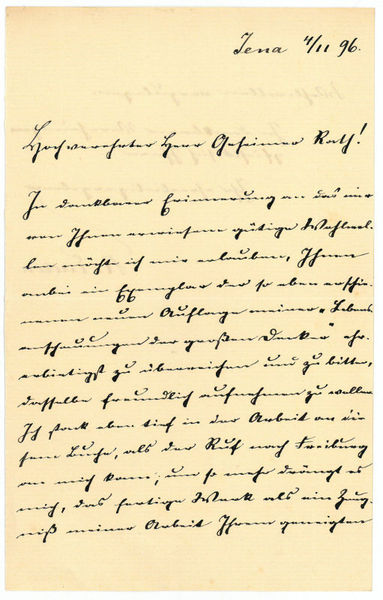 Jena 4/11 96.
Hochverehrter Herr Geheimer Rath!
In dankbarer Erinnerung an das mir
von Ihnen erwiesene gütige Wohlwol-
len möchte ich mir erlauben, Ihnen
anbei ein Exemplar der so eben erschie-
nenen neuen Auflage meiner "Lebens-
anschauungen der großen Denker" ehr-
erbietigst zu überreichen und zu bitten,
dasselbe freundlich aufnehmen zu wollen.
Ich stack eben tief in der Arbeit an die-
sem Buche, als der Ruf nach Freiburg
an mich kam; um so mehr drängt es
mich, das fertige Werk als ein Zeug-
niß meiner Arbeit Ihrem geneigten